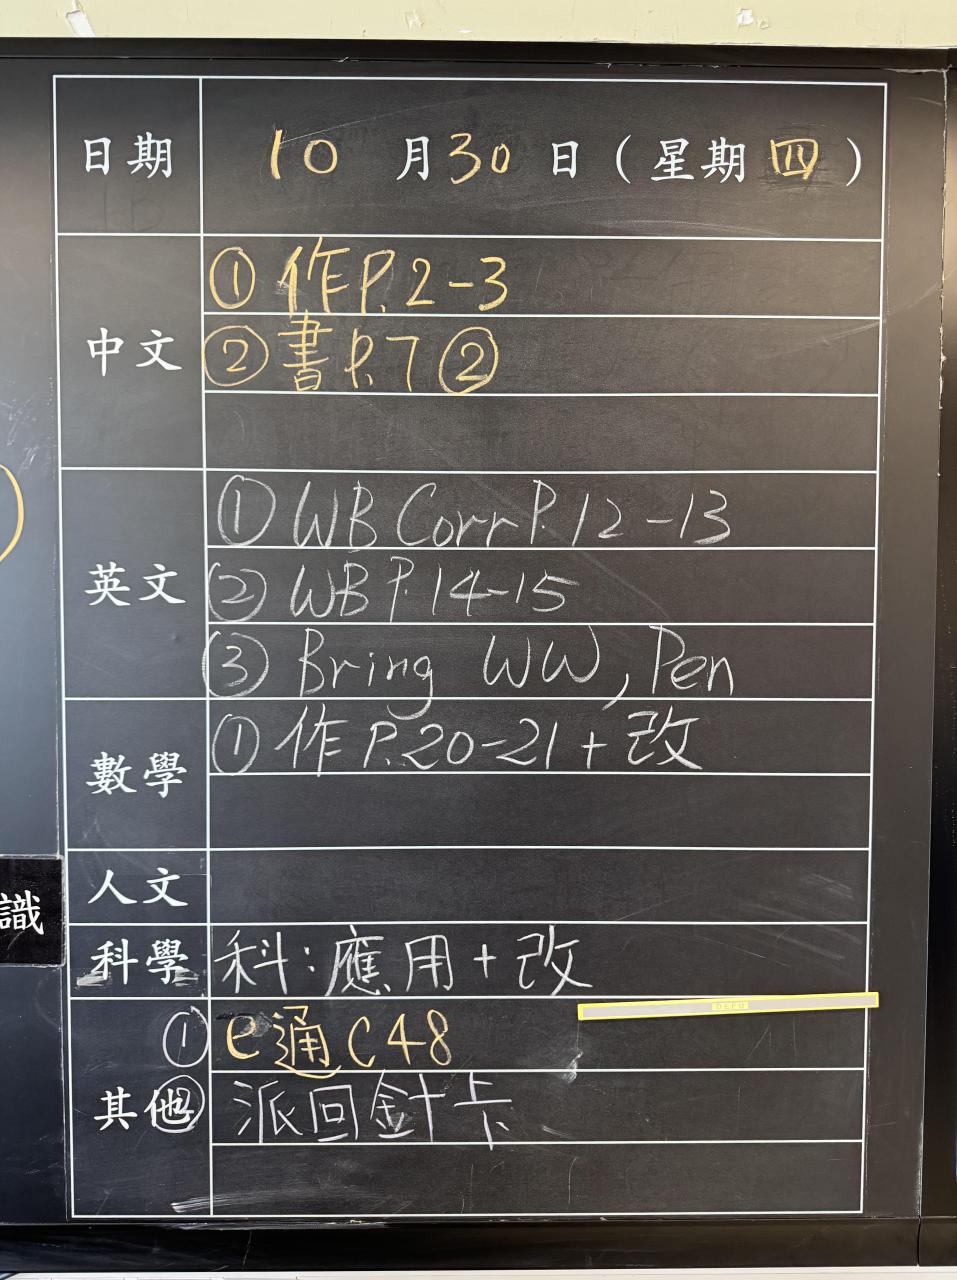 日期 10月30日(星期四)
中文
① 作P.2-3
② 書P.7②
英文
① WB Corr P.12-13
② WB P.14-15
③ Bring WW, Pen
數學
① 作P.20-21+改
人文
科學
科:應用+改
其他
① e通C48
② 派回針卡
識